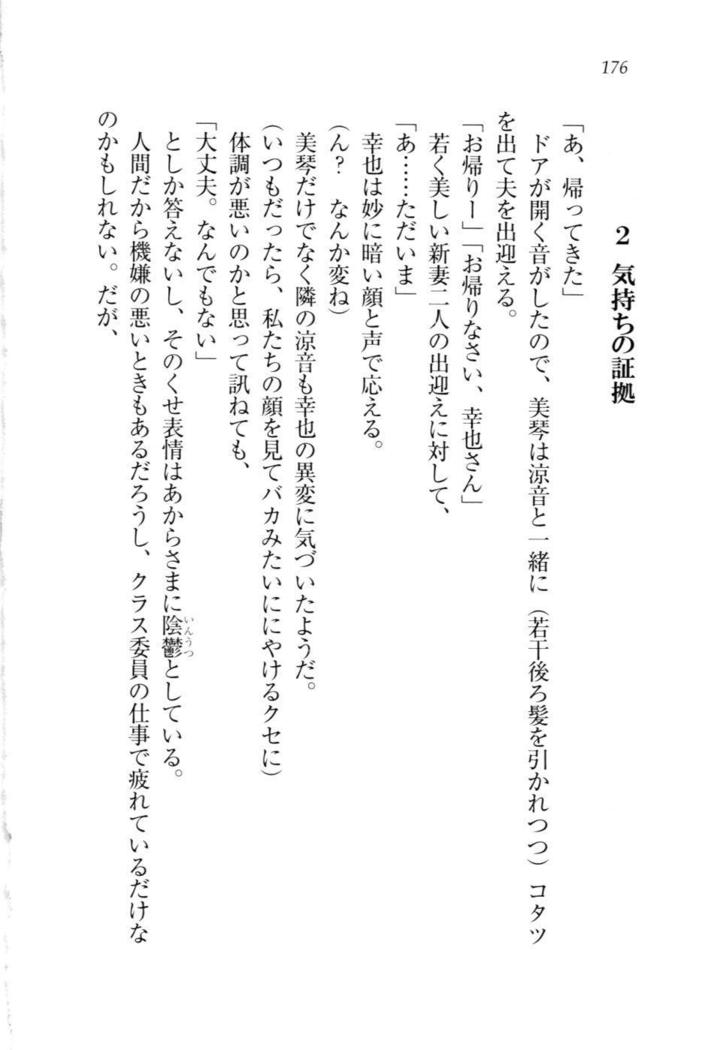 176
2 気持ちの証拠
「あ、帰ってきた」
ドアが開く音がしたので、美琴は涼音と一緒に（若干後ろ髪を引かれつつ）コタツ
を出て夫を出迎える。
「お帰りー」「お帰りなさい、幸也さん」
若く美しい新妻二人の出迎えに対して、
「あ……ただいま」
幸也は妙に暗い顔と声で応える。
（ん？　なんか変ね）
美琴だけでなく隣の涼音も幸也の異変に気づいたようだ。
（いつもだったら、私たちの顔を見てバカみたいににやけるクセに）
体調が悪いのかと思って訊ねても、
「大丈夫。なんでもない」
としか答えないし、そのくせ表情はあからさまに陰鬱としている。
いんうつ
人間だから機嫌の悪いときもあるだろうし、クラス委員の仕事で疲れているだけな
のかもしれない。だが、